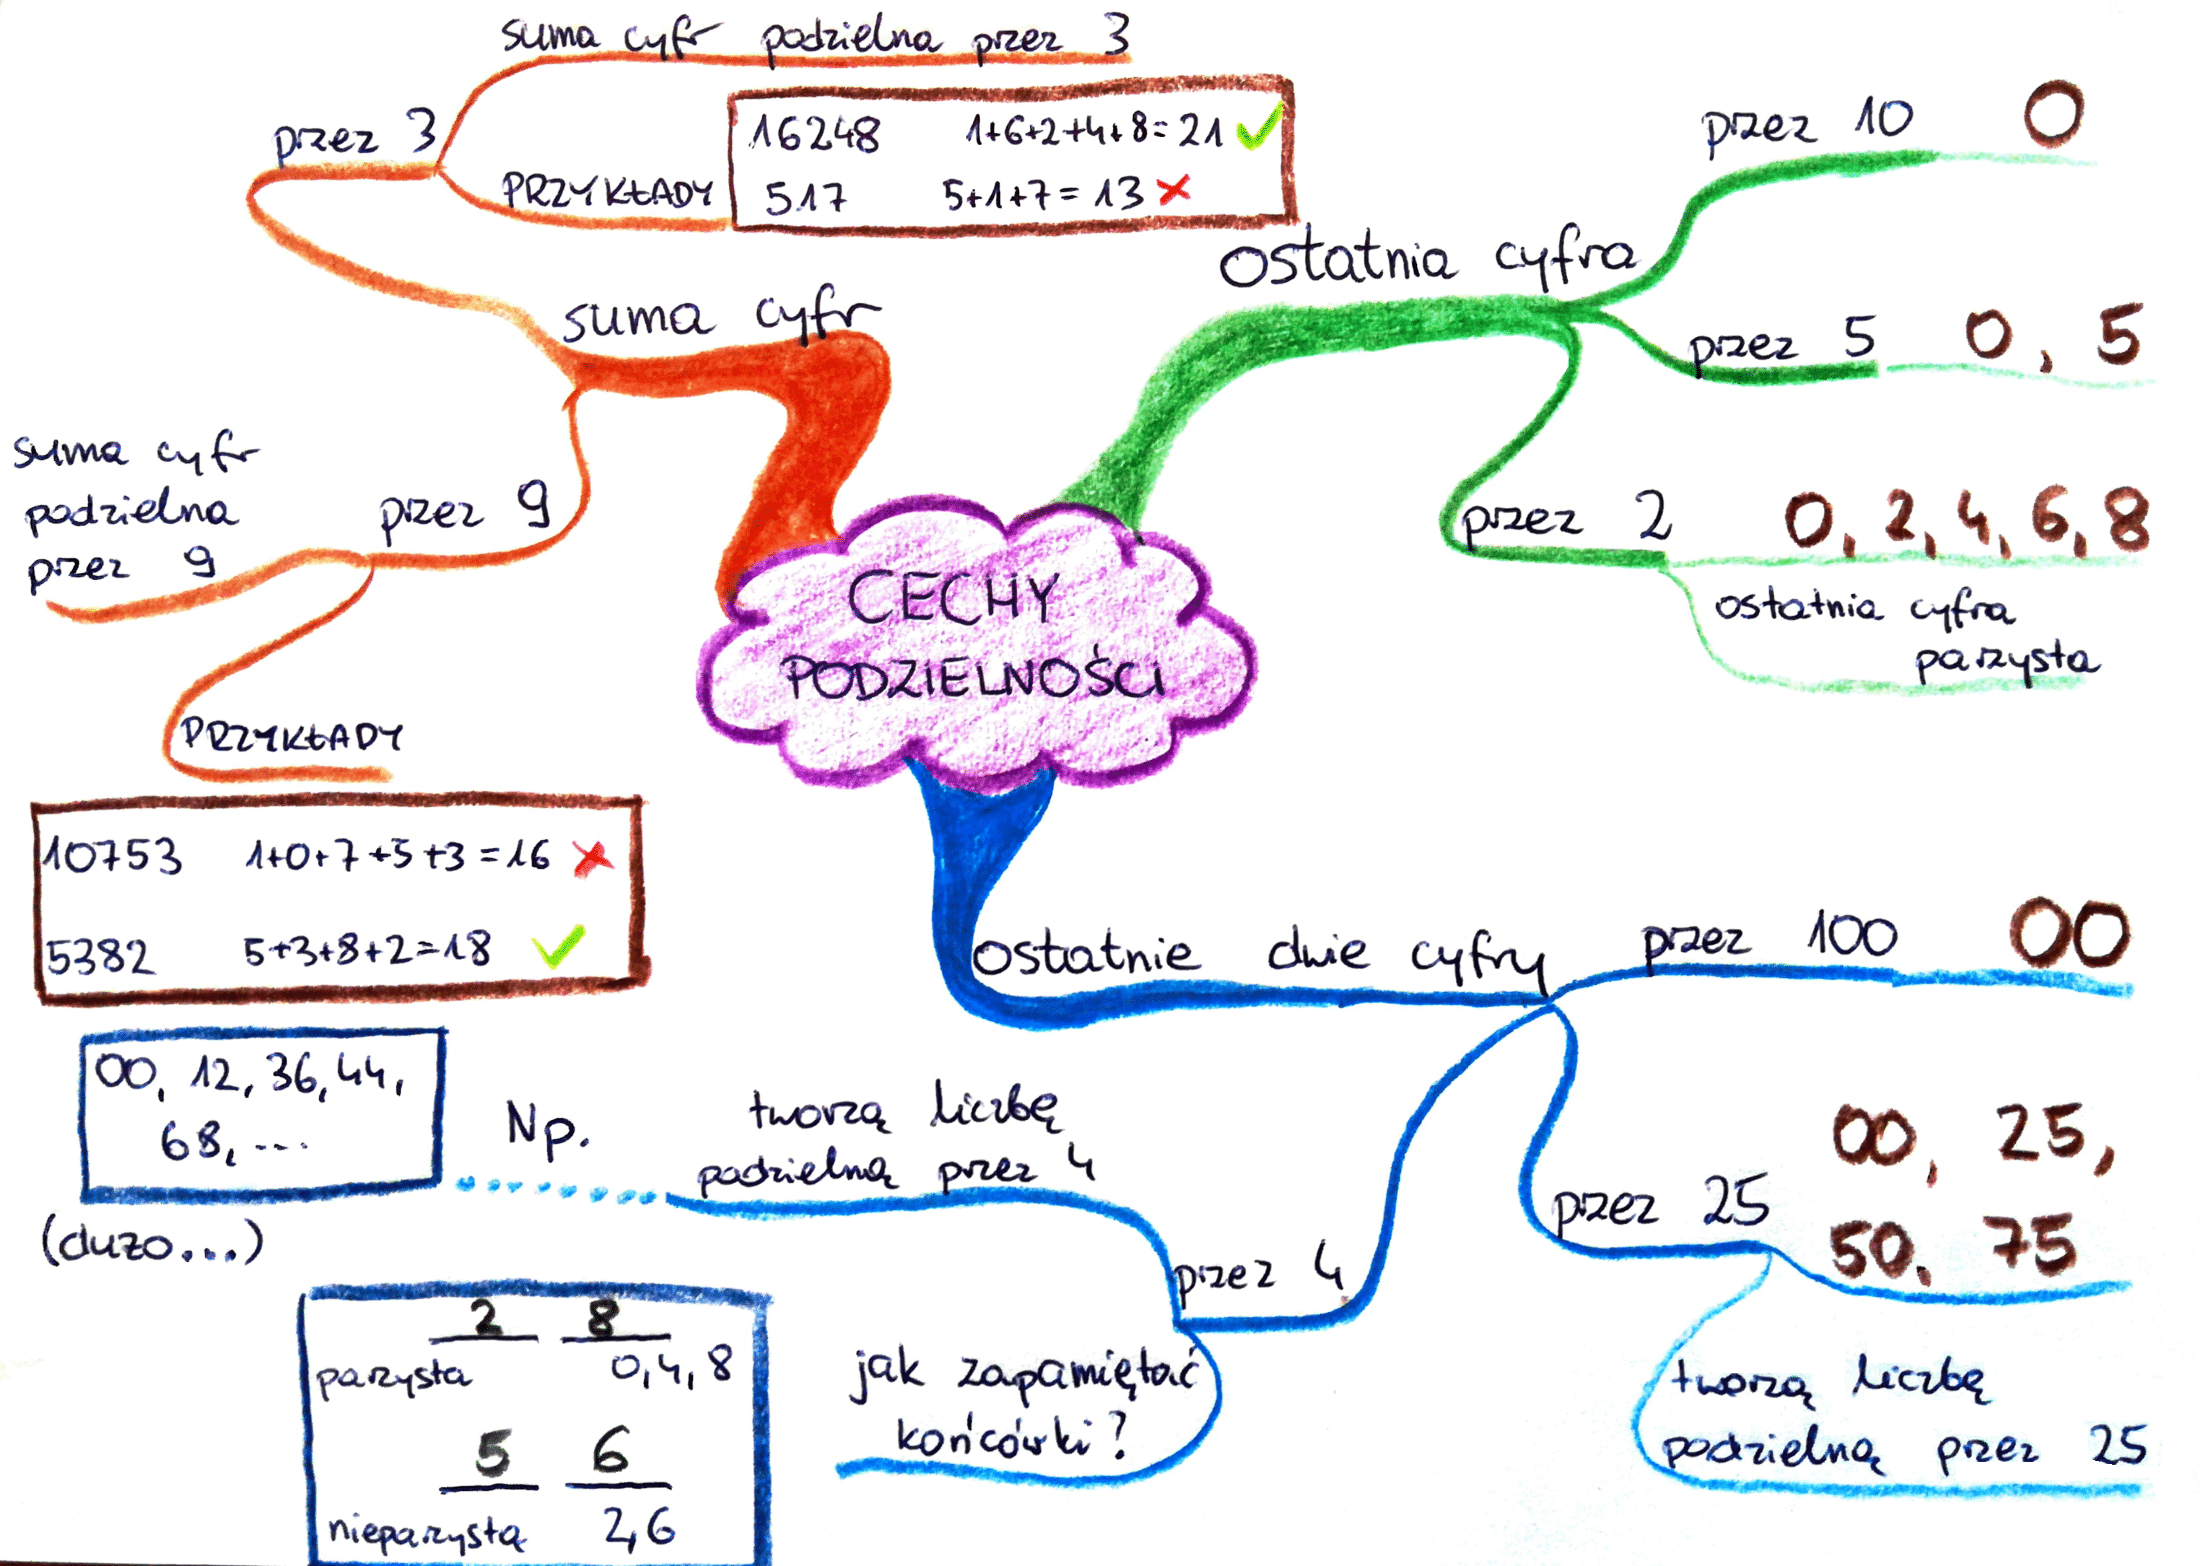 CECHY
PODZIELNOŚCI
suma cyfr
przez 3
suma cyfr podzielna przez 3
PRZYKŁADY
16248 1+6+2+4+8=21 ✓
517 5+1+7=13 ✗
przez 9
suma cyfr
podzielna
przez 9
PRZYKŁADY
10753 1+0+7+5+3=16 ✗
5382 5+3+8+2=18 ✓
ostatnia cyfra
przez 10 0
przez 5 0, 5
przez 2 0, 2, 4, 6, 8
ostatnia cyfra
parzysta
ostatnie dwie cyfry
przez 100 00
przez 25
00, 25,
50, 75
tworzą liczbę
podzielną przez 25
przez 4
tworzą liczbę
podzielną przez 4
Np.
00, 12, 36, 44,
68, ...
(dużo...)
jak zapamiętać
końcówki?
2 8
parzysta 0, 4, 8
5 6
nieparzystą 2, 6